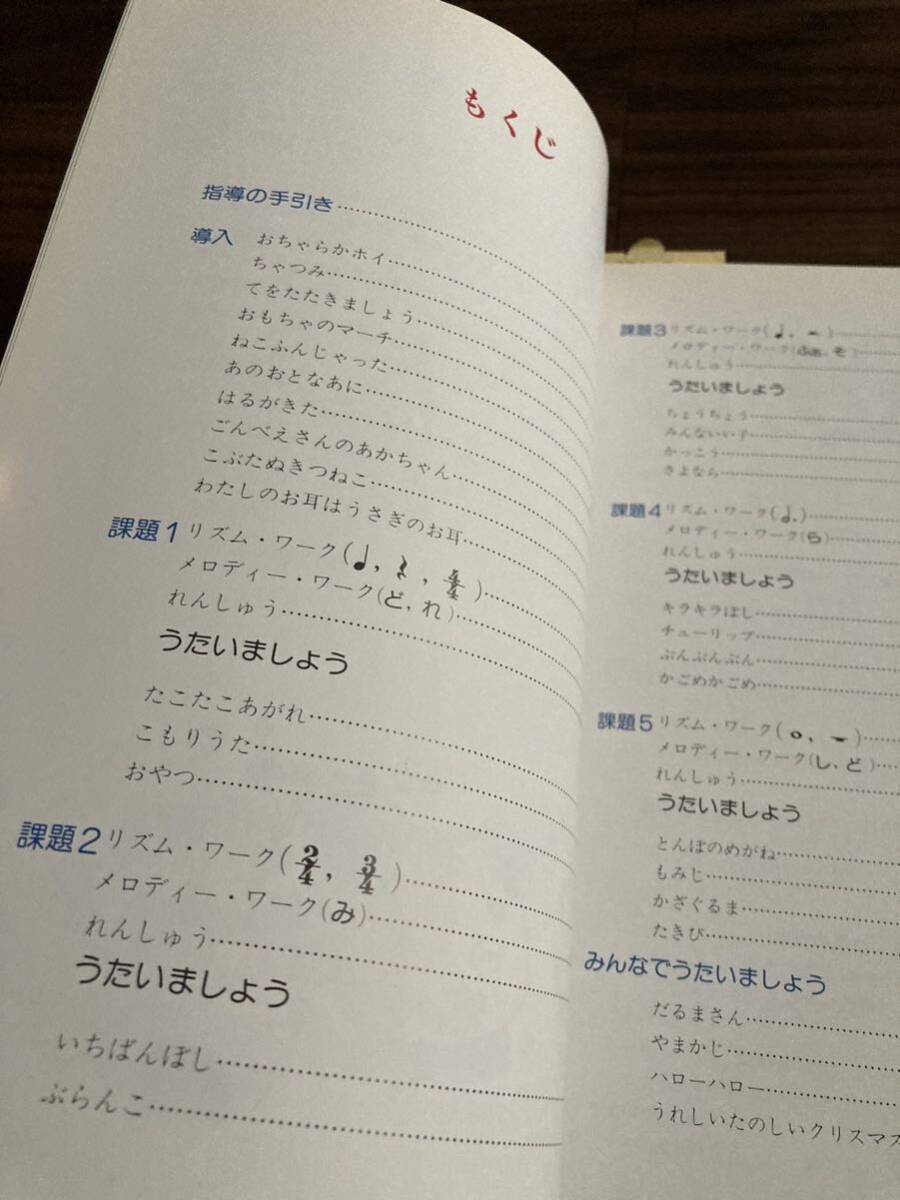 もくじ
指導の手引き
導入 おちゃらかホイ
ちゃつみ
てをたたきましょう
おもちゃのマーチ
ねこふんじゃった
あのおとなあに
はるがきた
ごんべえさんのあかちゃん
こぶたぬきつねこ
わたしのお耳はうさぎのお耳
課題1 リズム・ワーク(♩, 𝄽, 4/4)
メロディー・ワーク(ど, れ)
れんしゅう
うたいましょう
たこたこあがれ
こもりうた
おやつ
課題2 リズム・ワーク(2/4, 3/4)
メロディー・ワーク(み)
れんしゅう
うたいましょう
いちばんぼし
ぶらんこ
課題3 リズム・ワーク(𝅗𝅥, 𝄼)
メロディー・ワーク(ふぁ, そ)
れんしゅう
うたいましょう
ちょうちょう
みんないい子
かっこう
さよなら
課題4 リズム・ワーク(𝅗𝅥.)
メロディー・ワーク(ら)
れんしゅう
うたいましょう
キラキラぼし
チューリップ
ぶんぶんぶん
かごめかごめ
課題5 リズム・ワーク(𝅝, 𝄻)
メロディー・ワーク(し, ど)
れんしゅう
うたいましょう
とんぼのめがね
もみじ
かざぐるま
たきび
みんなでうたいましょう
だるまさん
やまかじ
ハローハロー
うれしいたのしいクリスマス